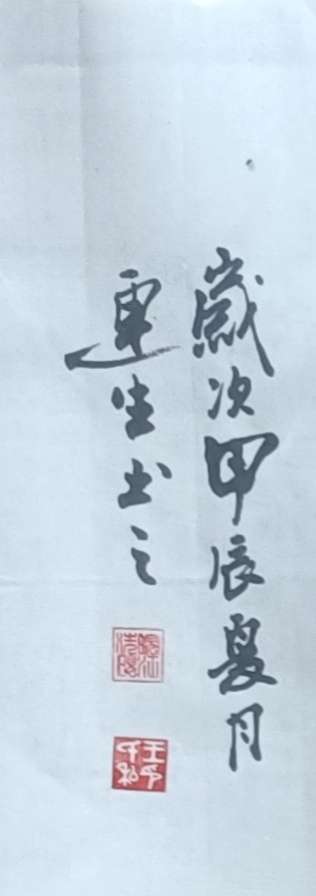 歲次甲辰夏月
運生书之